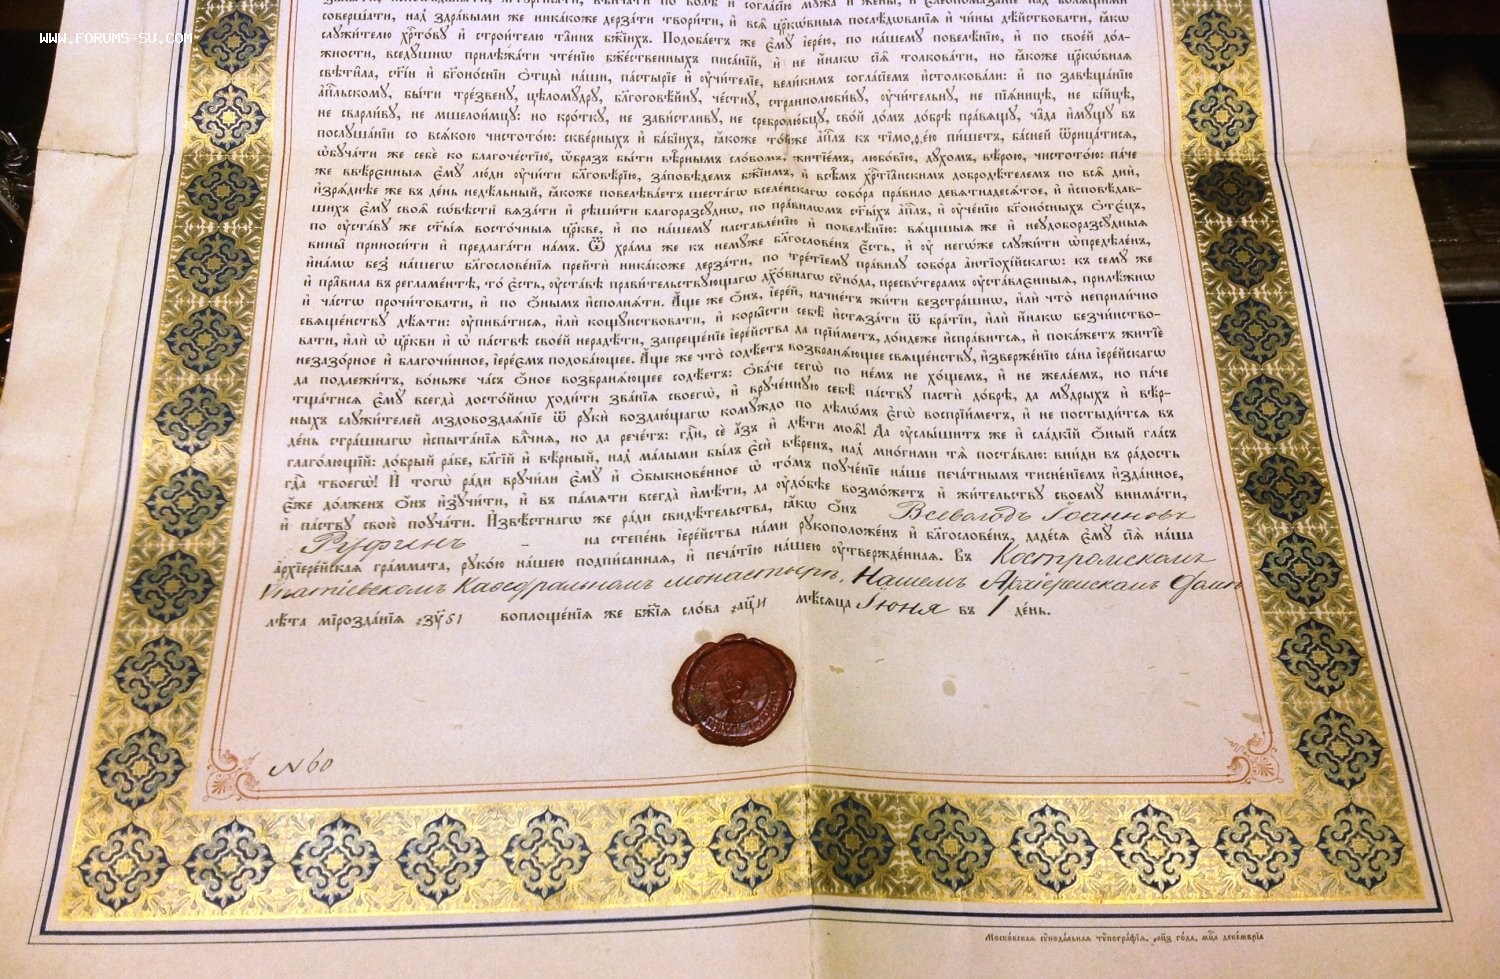 WWW.FORUMS-SU.COM
совершати, над̾ здра́выми же ника́коже дерза́ти твори́ти, и҆ всѧ̑ цр҃кѡ́вныѧ послѣ́дованїѧ и҆ чи́ны дѣ́йствовати, ꙗ҆́кѡ
слꙋжи́телю хрⷭ҇то́вꙋ и҆ строи́телю та́инъ бж҃їихъ. Подоба́етъ же є҆мꙋ̀ і҆ере́ю, по на́шемꙋ повелѣ́нїю, и҆ по свое́й до́л-
жности, вседꙋ́шнѡ прилѣжа́ти чте́нїю бж҃е́ственныхъ писа́нїй, и҆ не и҆на́кѡ сїѧ̑ толкова́ти, но ꙗ҆́коже цр҃кѡ́внаѧ
свѣти̑ла, ст҃і́и и҆ бг҃оно́снїи ѻ҆тцы̀ на́ши, па́стырїе и҆ ᲂу҆чи́телїе, вели́кимъ согла́сїемъ и҆столкова́ли: и҆ по завѣща́нїю
а҆пⷭ҇льскомꙋ, бы́ти тре́звенꙋ, цѣломꙋ́дрꙋ, благоговѣ́йнꙋ, че́стнꙋ, страннолюби́вꙋ, ᲂу҆чи́тельнꙋ, не пїѧ́ницѣ, не бі́йцѣ,
не сварли́вꙋ, не мшелои́мцꙋ: но кро́ткꙋ, не зави́стливꙋ, не сребролю́бцꙋ, сво́й до́мъ до́брѣ пра́вѧщꙋ, ча̑да и҆мꙋ́щꙋ въ
послꙋша́нїи со всѧ́кою чистото́ю: скве́рныхъ и҆ ба́бїихъ, ꙗ҆́коже то́йже а҆пⷭ҇лъ къ тїмоѳе́ю пи́шетъ, ба́сней ѿрица́тисѧ,
ѡ҆бꙋча́ти же себѐ ко благоче́стїю, ѡ҆́бразъ бы́ти вѣ̑рнымъ сло́вомъ, житїе́мъ, любо́вїю, дꙋ́хомъ, вѣ́рою, чистото́ю: па́че
же ввѣ́рєнныѧ є҆мꙋ̀ лю́ди ᲂу҆чи́ти бл҃говѣ́рїю, за́повѣдемъ бж҃їимъ, и҆ всѣ̑мъ хрⷭ҇тїа́нскимъ добродѣ́телемъ по всѧ̑ дни̑,
и҆зрѧ́днѣе же въ де́нь недѣ́льный, ꙗ҆́коже повелѣва́етъ шеста́гѡ вселе́нскагѡ собо́ра пра́вило девѧтнадесѧ́тое, и҆ и҆сповѣ́дав-
шихъ є҆мꙋ̀ своѧ̑ сѡ́вѣсти вѧза́ти и҆ рѣши́ти благоразсꙋ́днѡ, по пра́вилѡмъ ст҃ы́хъ а҆пⷭ҇лъ, и҆ ᲂу҆че́нїю бг҃оно́сныхъ ѻ҆тє́цъ,
по ᲂу҆ста́вꙋ же ст҃ы́ѧ восто́чныѧ цр҃кве, и҆ по на́шемꙋ наставле́нїю и҆ повелѣ́нїю: вѧ́щшыѧ же и҆ неꙋдоборазсꙋ̑дныѧ
вины̑ приноси́ти и҆ предлага́ти на́мъ. Ѿ хра́ма же къ немꙋ́же бл҃гослове́нъ є҆́сть, и҆ ᲂу҆ негѡ́же слꙋжи́ти ѡ҆предѣле́нъ,
и҆на́мѡ без̾ на́шегѡ бл҃гослове́нїѧ прейти́ ника́коже дерза́ти, по тре́тїемꙋ пра́вилꙋ собо́ра а҆нтїохі́йскагѡ: къ семꙋ́ же
и҆ пра̑вила въ регла́ментѣ, то̀ є҆́сть, ᲂу҆ста́вѣ прави́тельствꙋющагѡ дх҃о́внагѡ сѷно́да, пресвѵ́терамъ ᲂу҆ста́влєнныѧ, прилѣ́жнѡ
и҆ ча́стѡ прочи́товати, и҆ по ѻ҆́нымъ и҆сполнѧ́ти. А҆́ще же ѻ҆́нъ, і҆ере́й, начне́тъ жи́ти безстра́шнѡ, и҆лѝ что̀ неприли́чно
свѧще́нствꙋ дѣ́ѧти: ᲂу҆пива́тисѧ, и҆лѝ кощꙋ́нствовати, и҆ коры̑сти себѣ̀ и҆стѧза́ти ѿ бра́тїи, и҆лѝ и҆на́кѡ безчи́нство-
вати, и҆лѝ ѡ҆ цр҃кви и҆ ѡ҆ па́ствѣ свое́й нерадѣ́ти, запреще́нїе і҆ере́йства да прїи́метъ, до́ндеже и҆спра́витсѧ, и҆ пока́жетъ житїѐ
незазо́рное и҆ благочи́нное, і҆ере́ємъ подоба́ющее. А҆́ще же что̀ содѣ́етъ возбранѧ́ющее свѧще́нствꙋ, и҆зверже́нїю са́на і҆ере́йскагѡ
да подлежи́тъ, во́ньже ча́съ ѻ҆́ное возбранѧ́ющее содѣ́етъ: ѻ҆ба́че сегѡ̀ по не́мъ не хо́щемъ, и҆ не жела́емъ, но па́че
тща́тисѧ є҆мꙋ̀ всегда̀ досто́йнѡ ходи́ти зва́нїѧ своегѡ̀, и҆ врꙋче́ннꙋю себѣ̀ па́ствꙋ пастѝ до́брѣ, да мꙋ́дрыхъ и҆ вѣ́р-
ныхъ слꙋжи́телей мздовоздаѧ́нїе ѿ рꙋкѝ воздаю́щагѡ комꙋ́ждо по дѣлѡ́мъ є҆гѡ̀ воспрїи́метъ, и҆ не постыди́тсѧ въ
де́нь стра́шнагѡ и҆спыта́нїѧ влⷣчнѧ, но да рече́тъ: гдⷭ҇и, сѐ а҆́зъ и҆ дѣ́ти моѧ̑! Да ᲂу҆слы́шитъ же и҆ сла́дкїй ѻ҆́ный гла́съ
глаго́лющїй: до́брый ра́бе, бл҃гі́й и҆ вѣ́рный, над̾ ма́лыми бы́лъ є҆сѝ вѣ́ренъ, над̾ мно́гими тѧ̀ поста́влю: вни́ди въ ра́дость
гдⷭ҇а твоегѡ̀! И҆ тогѡ̀ ра́ди врꙋчи́ли є҆мꙋ̀ и҆ ѻ҆быкнове́нное ѡ҆ то́мъ поꙋче́нїе на́ше печа́тнымъ тисне́нїемъ и҆зда́нное,
є҆́же до́лженъ ѻ҆́нъ и҆зꙋчи́ти, и҆ въ па́мѧти всегда̀ и҆мѣ́ти, да ᲂу҆до́бѣе возмо́жетъ и҆ жи́тельствꙋ своемꙋ̀ внима́ти,
и҆ па́ствꙋ свою̀ поꙋча́ти. И҆звѣ́стнагѡ же ра́ди свидѣ́тельства, ꙗ҆́кѡ ѻ҆́нъ Всеволодъ Іоанновъ
Руфинъ - на степе́нь і҆ере́йства на́ми рꙋкоположе́нъ и҆ бл҃гослове́нъ, даде́сѧ є҆мꙋ̀ сїѧ̀ на́ша
а҆рхїере́йскаѧ гра́ммата, рꙋко́ю на́шею подпи́саннаѧ, и҆ печа́тїю на́шею ᲂу҆твержде́ннаѧ. Въ Костромскомъ
Ипатіевскомъ Каѳедральномъ монастырѣ, Нашемъ Архіерейскомъ Домѣ
лѣ́та мїрозда́нїѧ ҂зу҃51 воплоще́нїѧ же бж҃їѧ сло́ва ҂ац҃и мѣ́сѧца Іюня въ 1 де́нь.
N 60
Моско́вскаѧ сѷнода́льнаѧ тѷпогра́фїѧ, ҂ац҃з го́да, мцⷭ҇а деке́мврїѧ